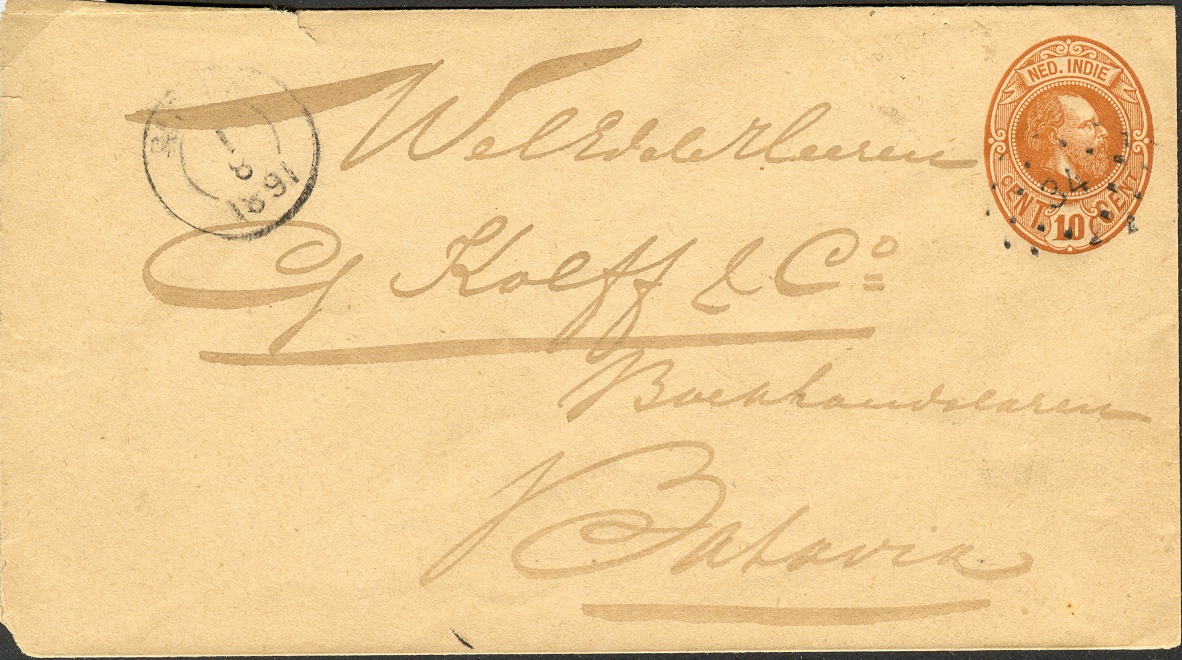 NED. INDIE
CENT 10 CENT
34
1
8
1891
WelEdele Heeren
G Kolff & Co
Boekhandelaren
Batavia